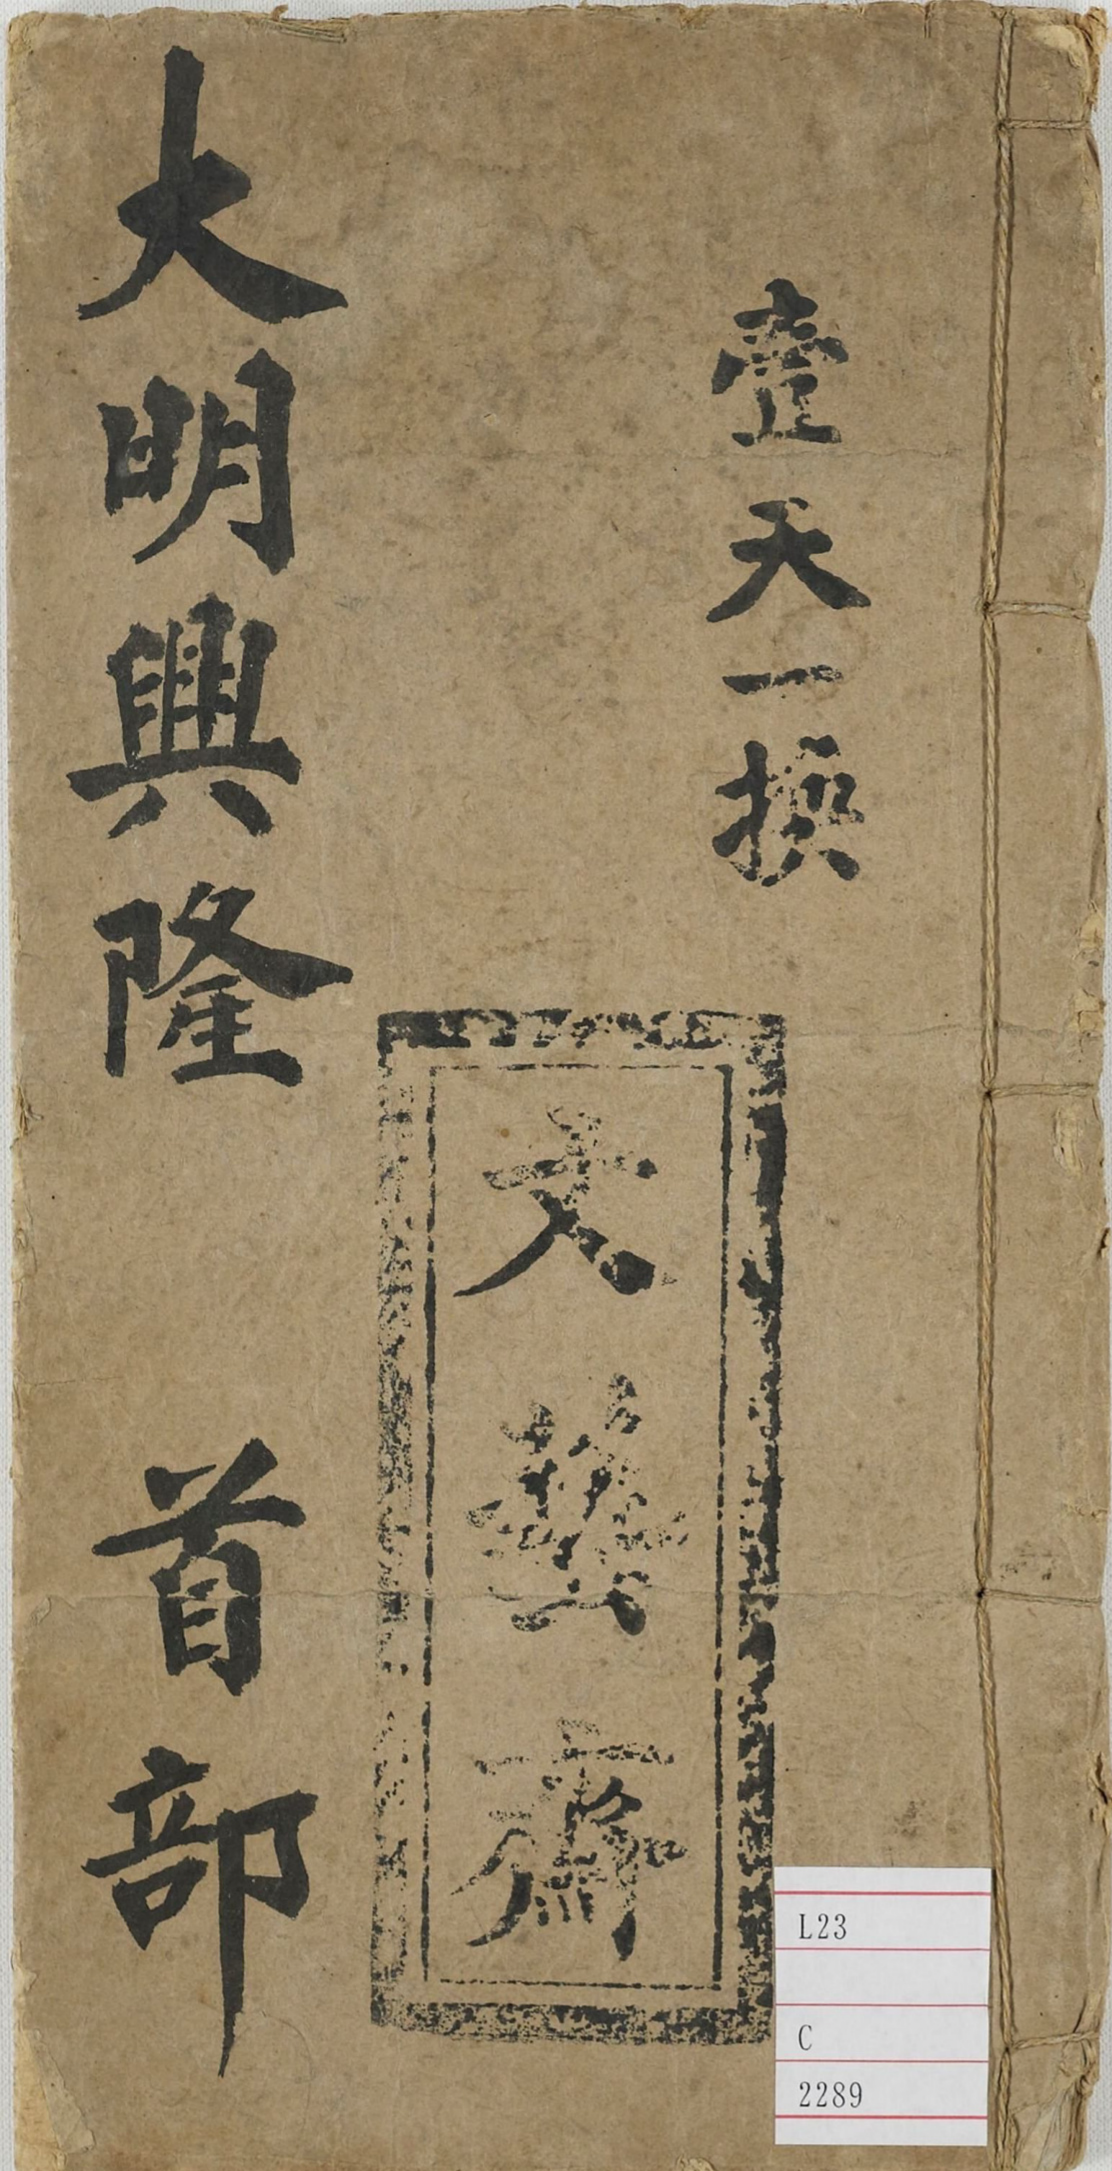 壹天一換
文藝齋
大明興隆　首部
L23
C
2289